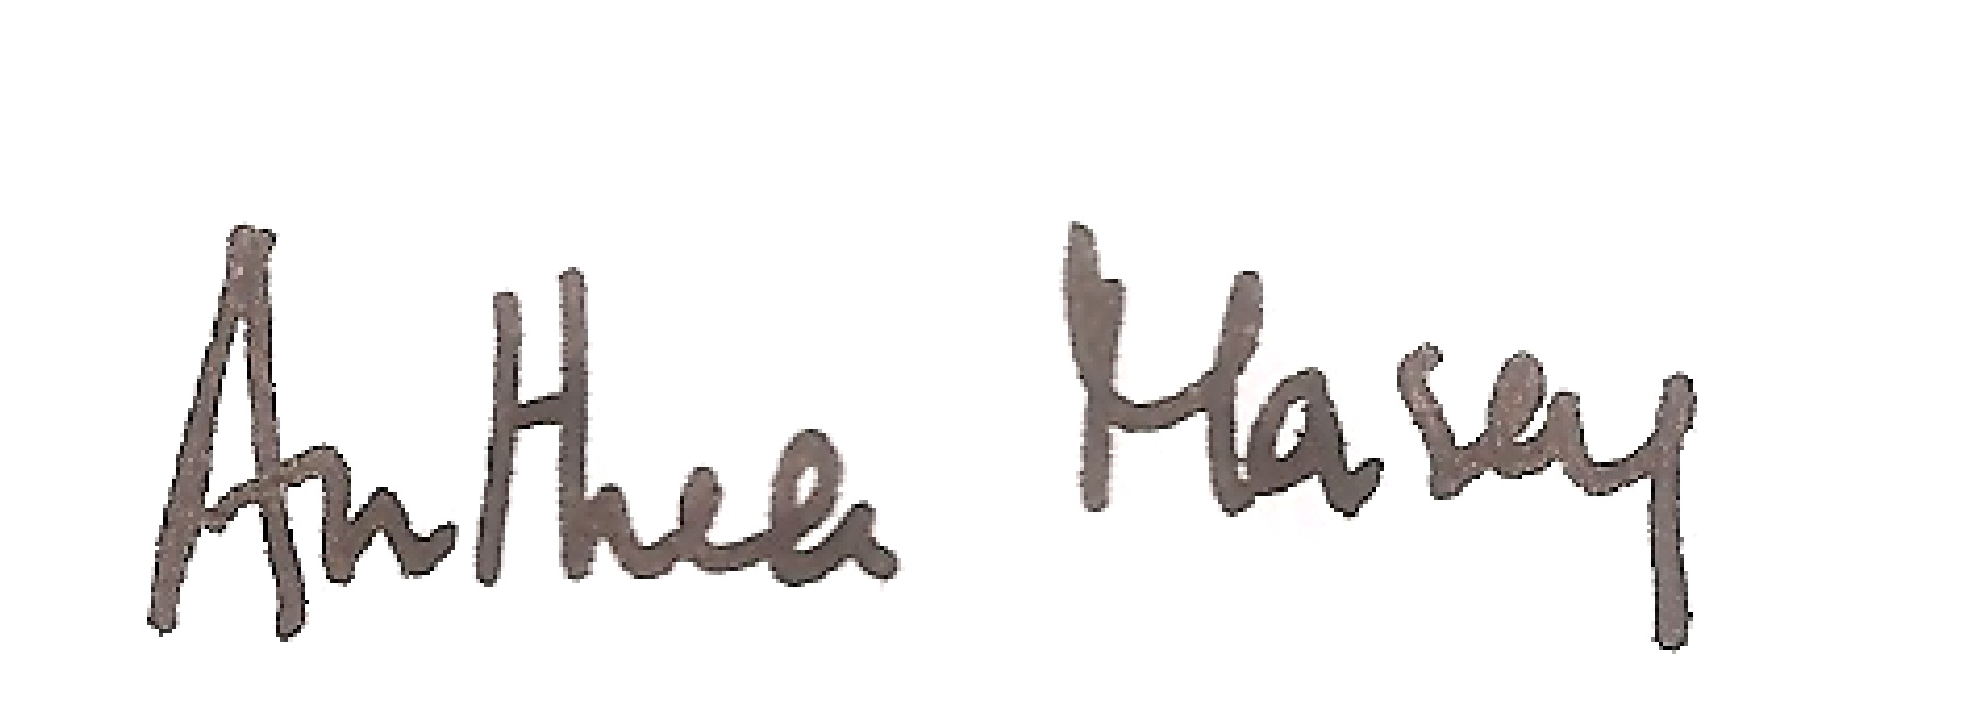 Anthea Masey